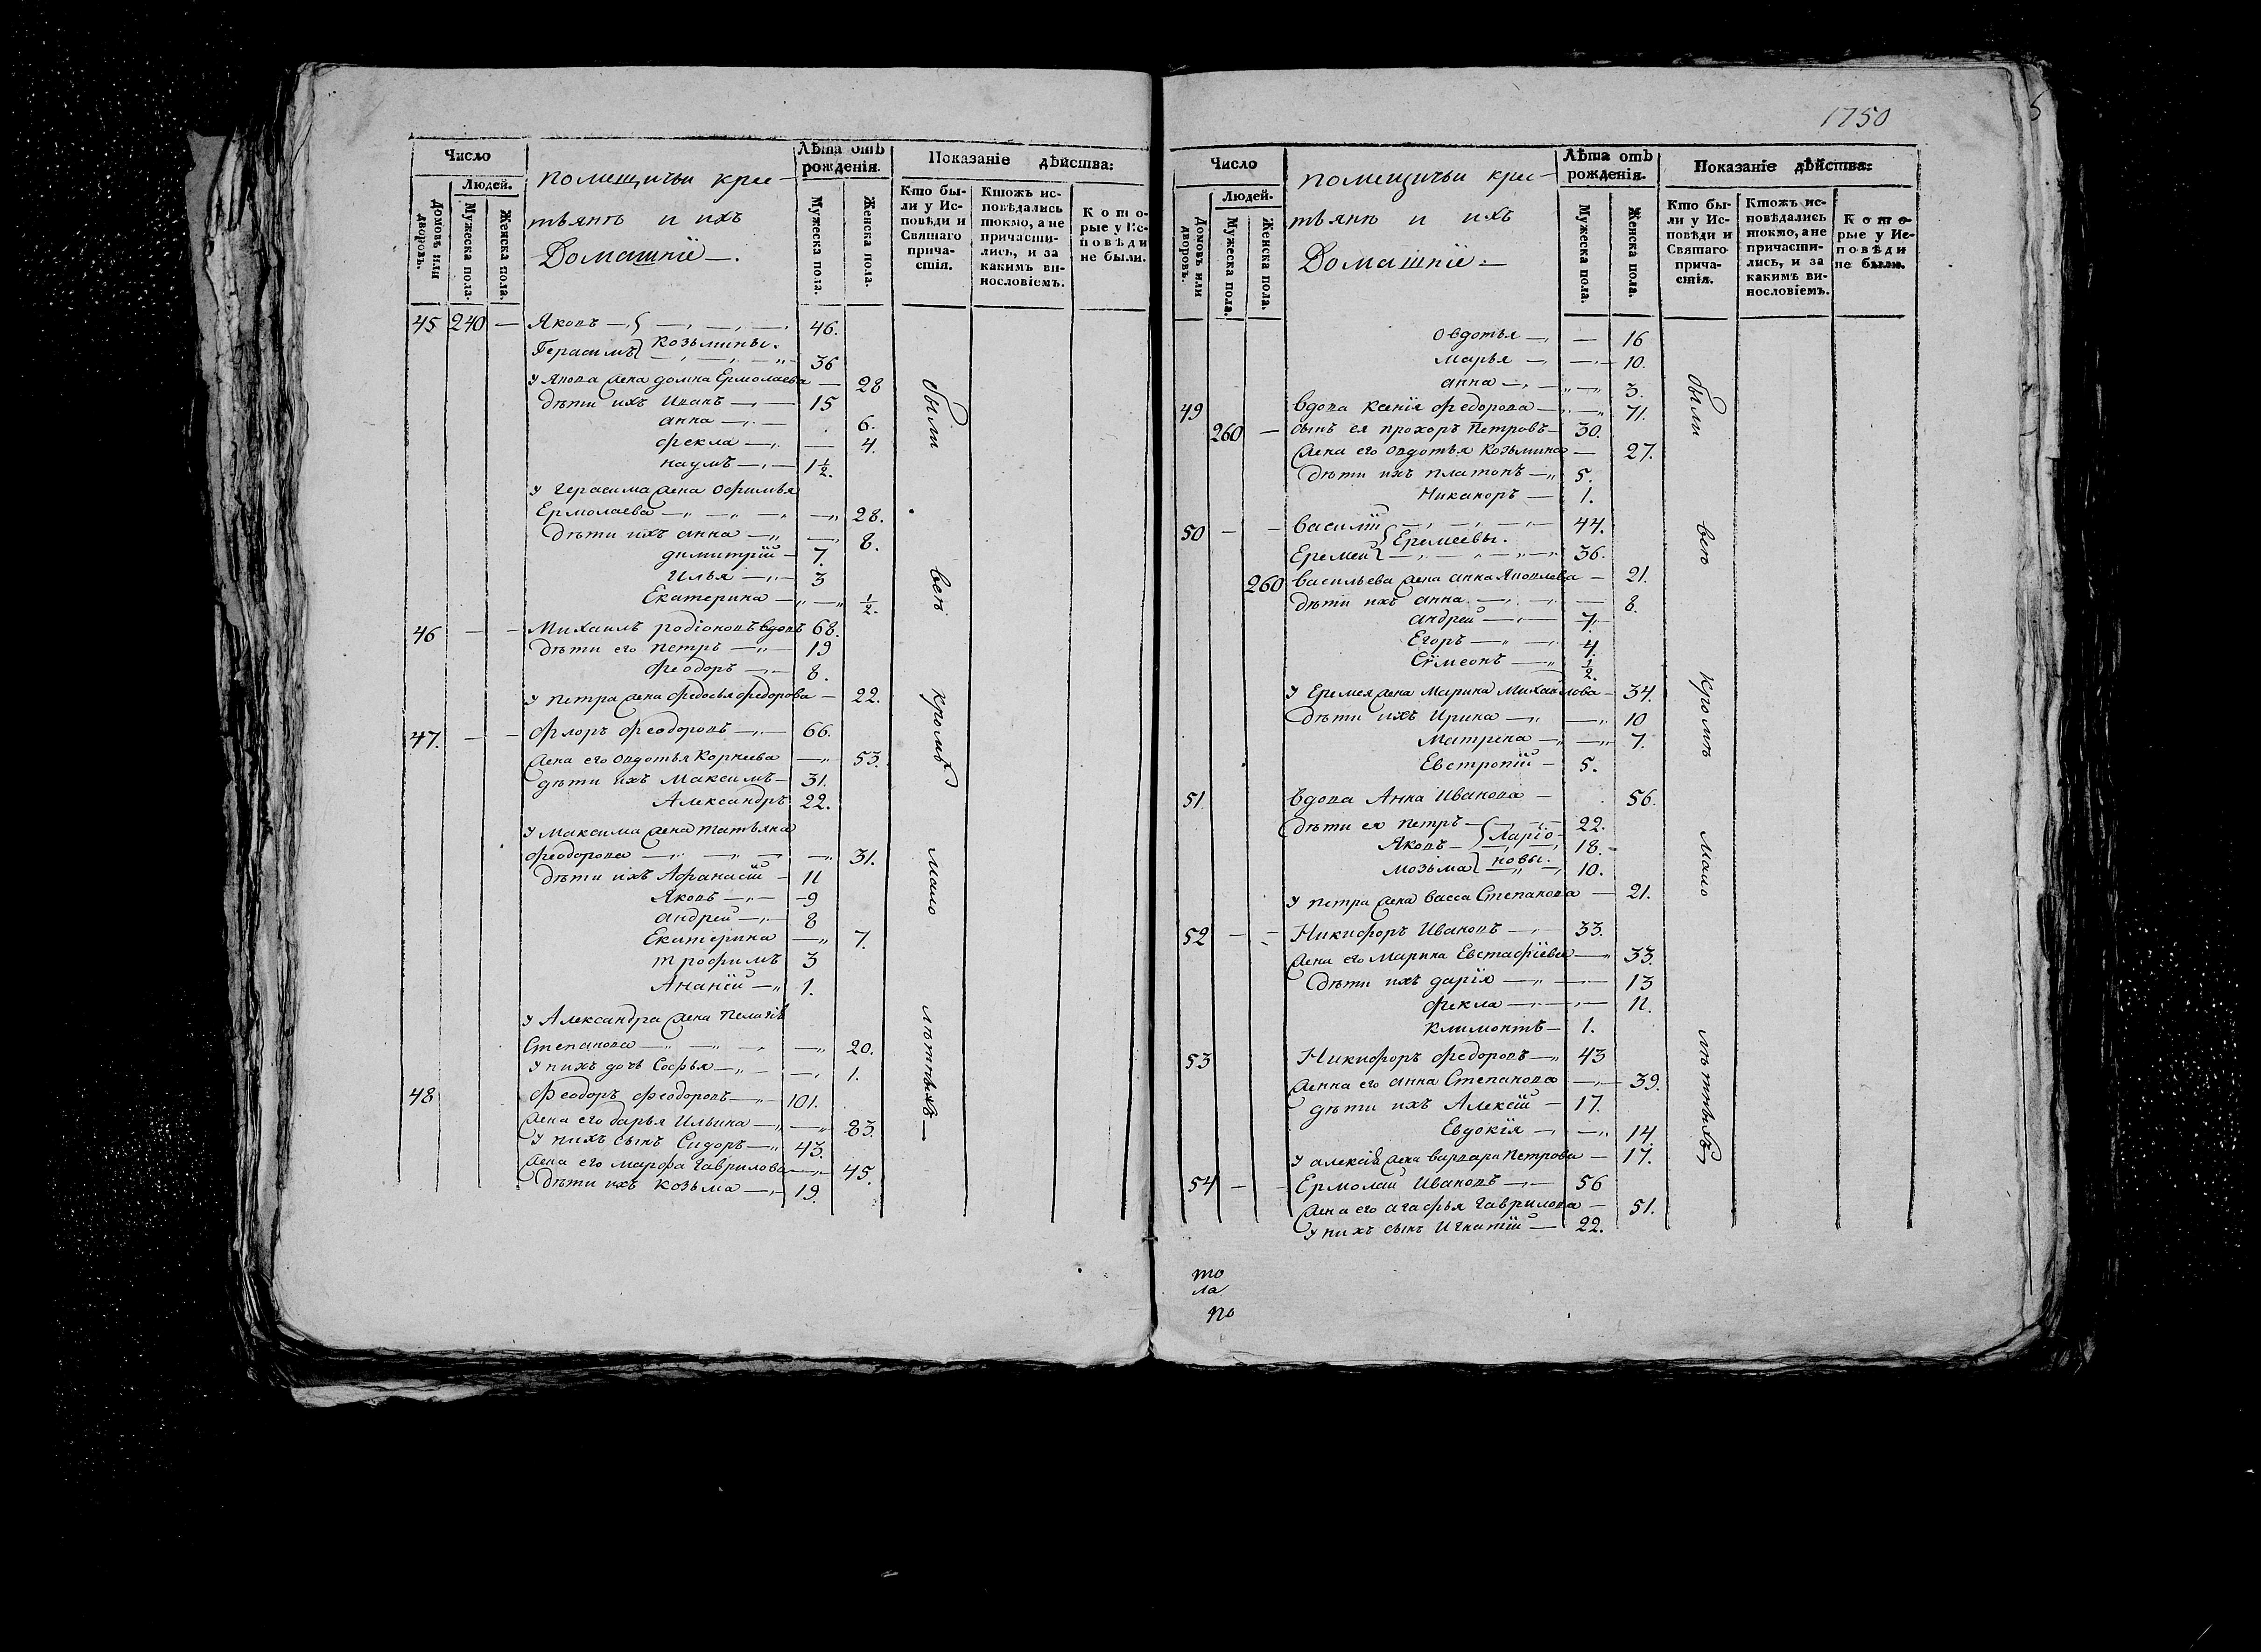 Число
Людей.
Домовъ или дворовъ.
Мужеска пола.
Женска пола.
помещичьи крес-
тьянъ и ихъ
Домашніе —.
Лѣта отъ рожденія.
Мужеска пола.
Женска пола.
Показаніе дѣйства:
Кто бы-
ли у Ис-
повѣди и
Святаго
прича-
стія.
Ктожъ ис-
повѣдались
токмо, а не
причасти-
лись, и за
какимъ ви-
нословіемъ.
Кото-
рые у Ис-
повѣди
не были.
45 240 — Яковъ — 46.
Герасимъ } Козьмины. 36
у Якова жена домна Ермолаева — 28
дѣти ихъ Иванъ — 15
анна — 6.
фекла — 4.
наумъ — 1½.
у герасима жена Офимья
Ермолаева — 28.
дѣти ихъ анна — 8.
димитрій — 7.
Илья — 3
Екатерина — ½.
46 — — Михаилъ родіоновъ вдовъ 68.
дѣти его петръ — 19
феодоръ — 8.
у петра жена федосья федорова — 22.
47. — — Флоръ Феодоровъ — 66.
жена его овдотья Корнеева — 53.
дѣти ихъ Максимъ — 31.
Александръ 22.
у Максима жена татьяна
феодорова — 31.
дѣти ихъ Афанасій — 11
Яковъ — 9
андрей — 8
Екатерина — 7.
трофимъ 3
Ананій — 1.
у Александра жена Пелагія
Степанова — 20.
у нихъ дочь Софья — 1.
48 Феодоръ феодоровъ — 101.
жена его дарья Ильина — 83.
у нихъ сынъ Сидоръ — 43.
жена его марфа гаврилова — 45.
дѣти ихъ козьма — 19.
были всѣ кромѣ мало лѣтнѣхъ —
1750
Число
Людей.
Домовъ или дворовъ.
Мужеска пола.
Женска пола.
помещичьи крес-
тьянъ и ихъ
Домашніе —
Лѣта отъ рожденія.
Мужеска пола.
Женска пола.
Показаніе дѣйства:
Кто бы-
ли у Ис-
повѣди и
Святаго
прича-
стія.
Ктожъ ис-
повѣдались
токмо, а не
причасти-
лись, и за
какимъ ви-
нословіемъ.
Кото-
рые у Ис-
повѣди
не были.
Овдотья — 16
марья — 10.
анна — 3.
49 вдова ксенія федорова — 71.
260 — сынъ ея прохоръ Петровъ — 30.
жена его овдотья Козьмина — 27.
дѣти ихъ платонъ — 5.
Никаноръ — 1.
50 — — василій — 44.
Еремей } Еремеевы. 36.
260 васильева жена анна Яковлева — 21.
дѣти ихъ анна — 8.
андрей — 7.
Егоръ — 4.
Сѵмеонъ — ½.
у Еремея жена Марина Михайлова — 34.
дѣти ихъ Ирина — 10
Матрена — 7.
Евстропій — 5.
51. вдова Анна Иванова — 56.
дѣти ея петръ — 22.
Яковъ — } Ларіо- 18.
козьма } новы. 10.
у петра жена васса Степанова — 21.
52 — — Никифоръ Ивановъ — 33.
жена его Марина Евстафіева — 33.
дѣти ихъ дарія — 13
фекла — 11.
климонтъ — 1.
53 Никифоръ федоровъ — 43
женна его анна Степанова — 39.
дѣти ихъ Алексій — 17.
Евдокія — 14.
у алексія жена варвара Петрова — 17.
54 — — Ермолай Ивановъ — 56
жена его агафья гаврилова — 51.
у нихъ сынъ Игнатій — 22.
были всѣ кромѣ мало лѣтнѣхъ
то
ла
по